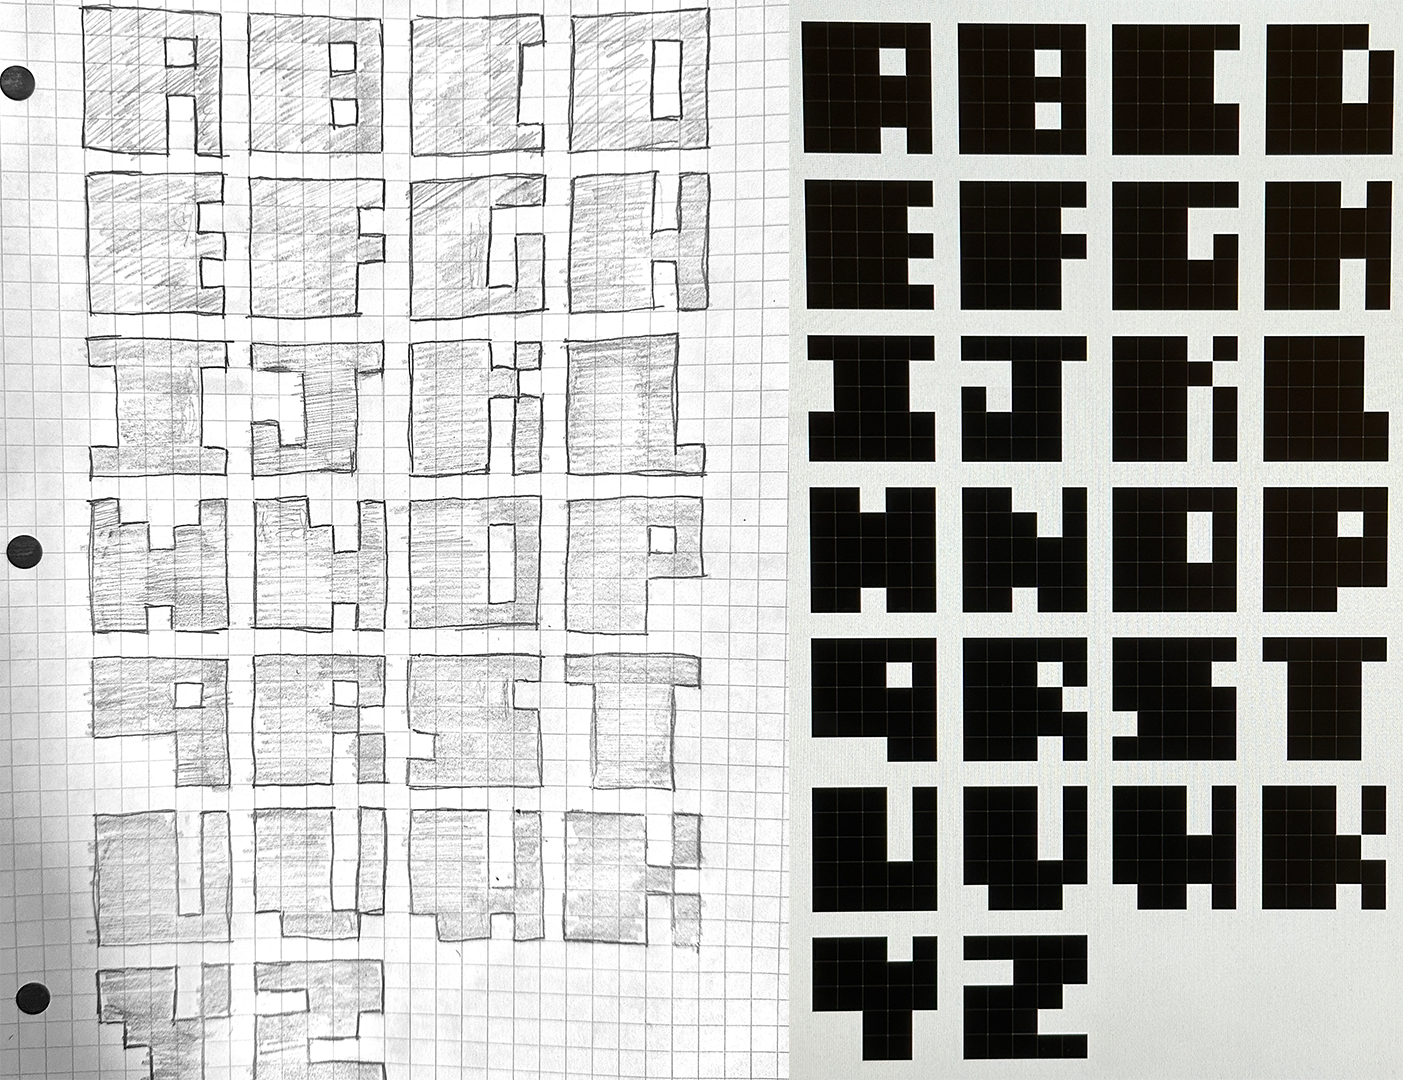 A B C D
E F G H
I J K L
M N O P
Q R S T
U V W X
Y Z
A B C D
E F G H
I J K L
M N O P
Q R S T
U V W X
Y Z